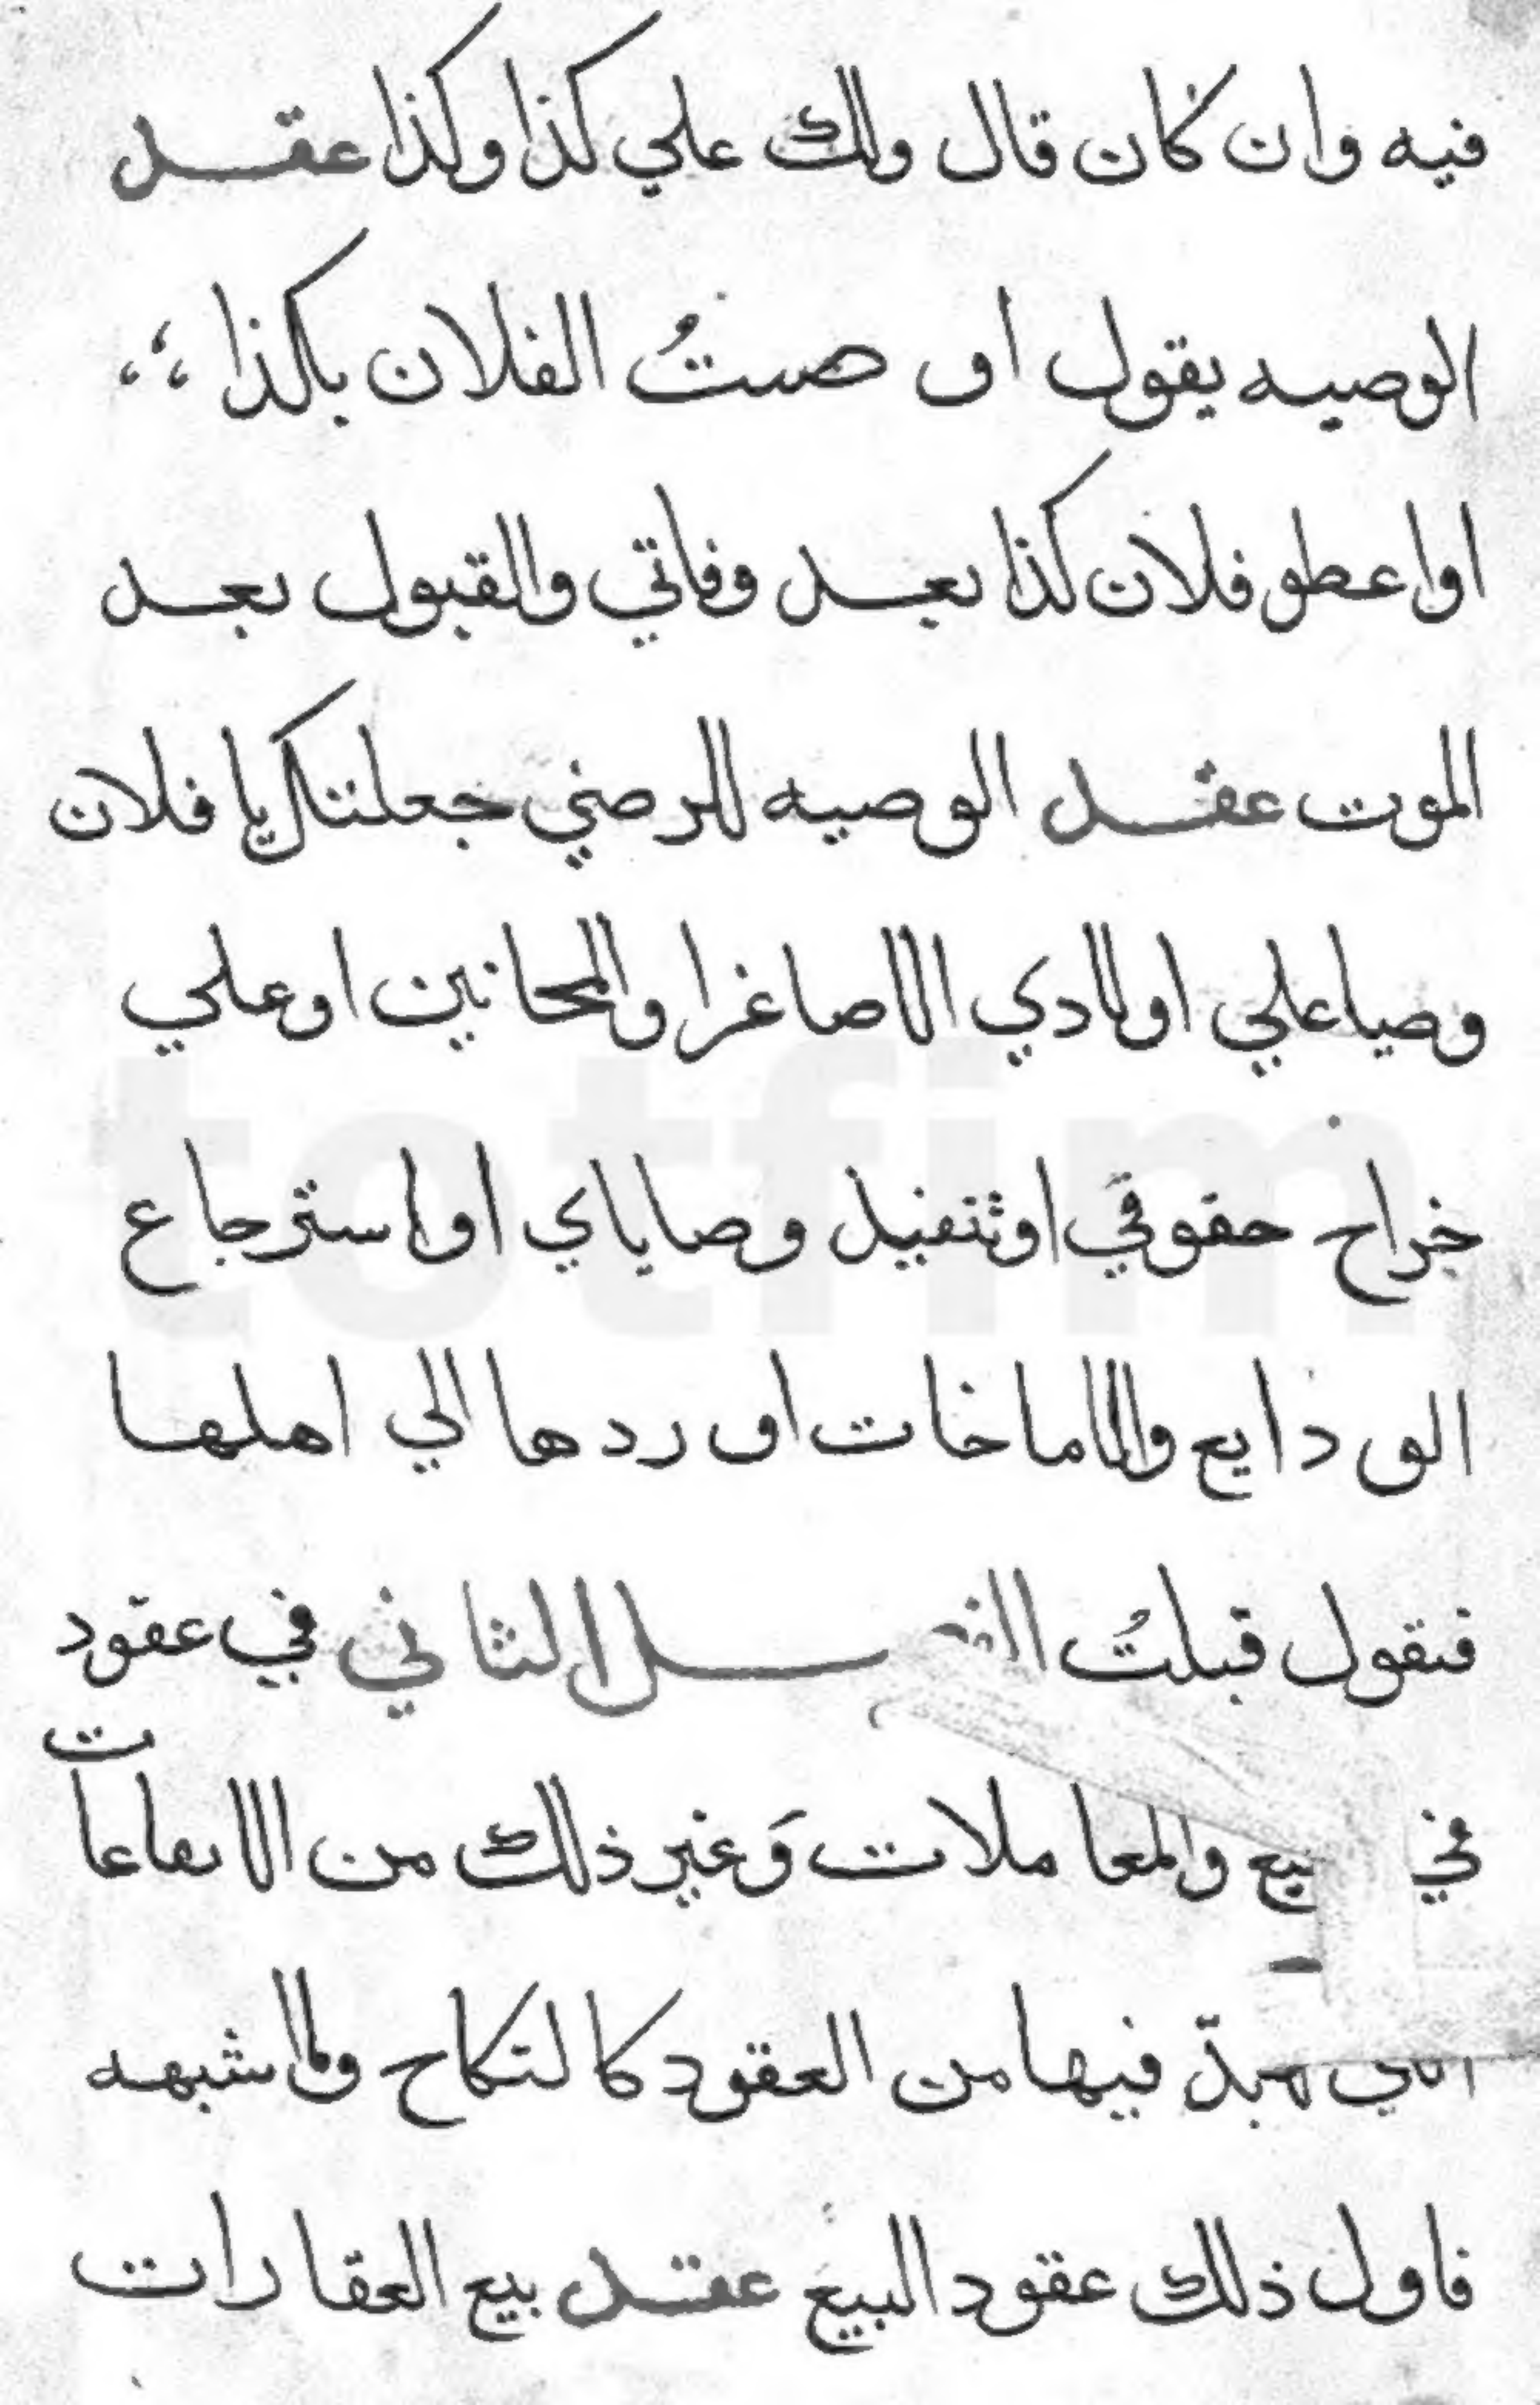 فيه وان كان قال ولك علي كذا وكذا عقد
الوصيه يقول او صيتُ الفلان بكذا
او اعطو فلان كذا بعد وفاتي والقبول بعد
الموت عقد الوصيه للرضي جعلتك يا فلان
وصيا علي اولادي الاصاغرا والمجانين او علي
خراج حقوقي او تنفيذ وصاياي او استرجاع
الودايع والاماخات او ردها الي اهلها
فتقول قبلتُ الفصل الثاني في عقود
في بيع والمعاملات وَغير ذلك من
فيها من العقود كالنكاح ولاشبهه
فاول ذلك عقود البيع عقد بيع العقارات
totfim